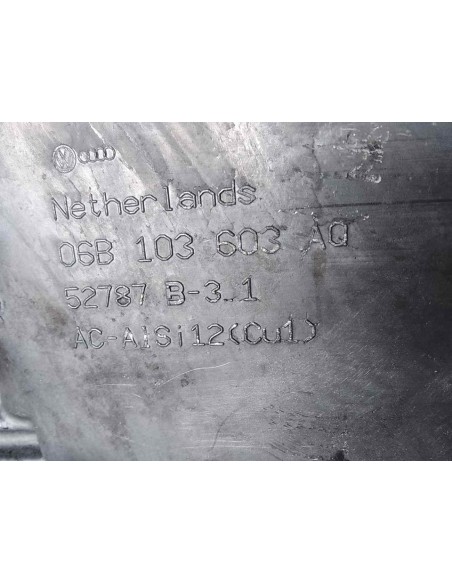 Netherlands
06B 103 603 AQ
52787 B-3.1
AC-AlSi12(Cu1)